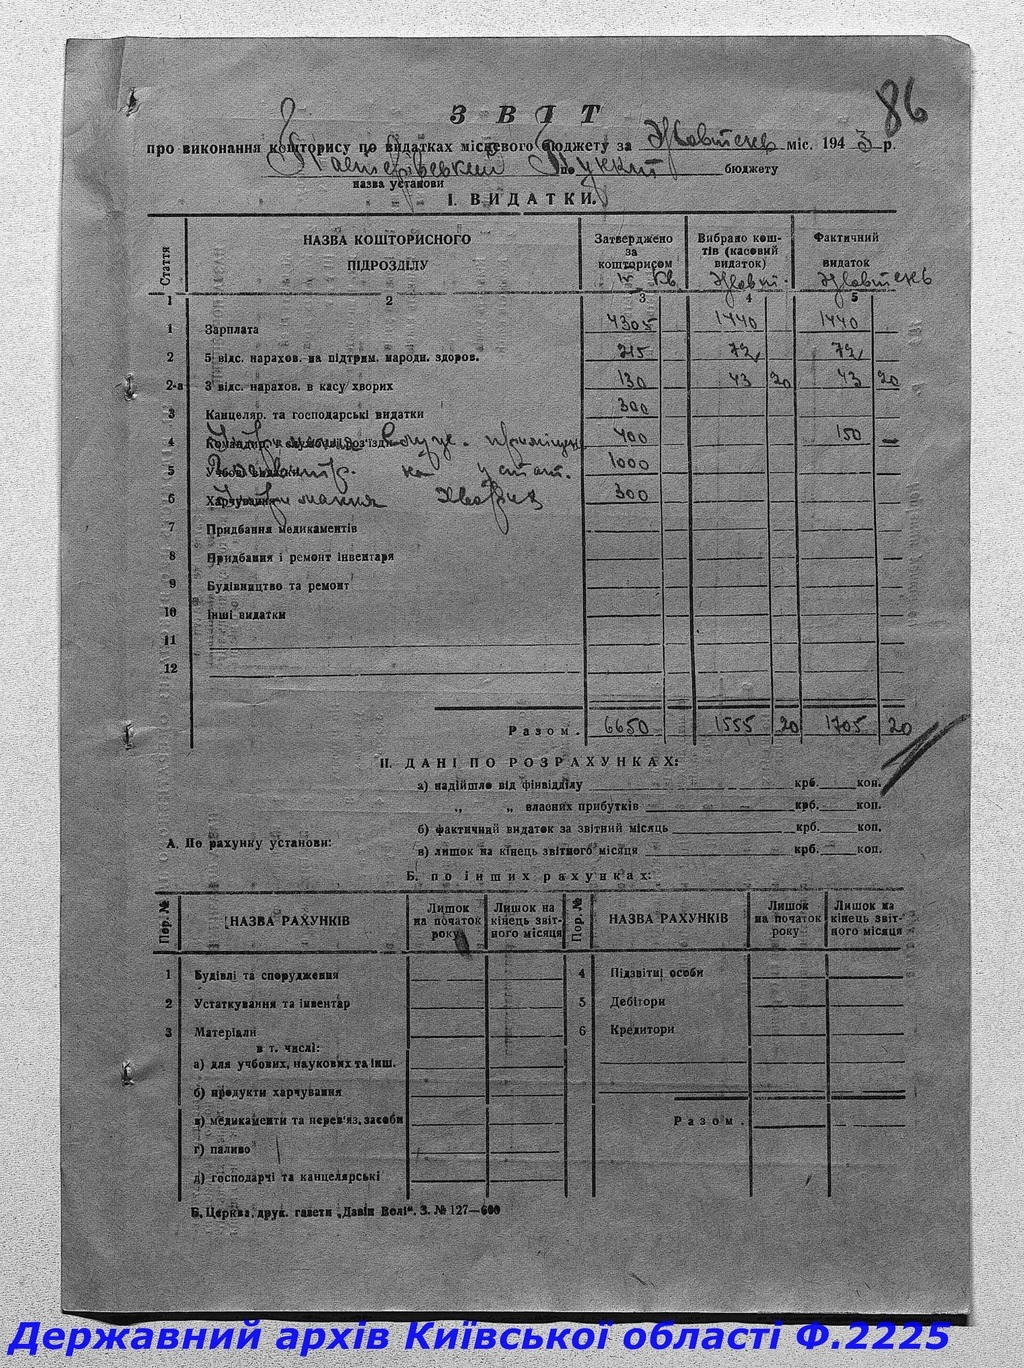 86
ЗВІТ
про виконання кошторису по видатках місцевого бюджету за Жовтень міс. 1943 р.
по Пункт бюджету
назва установи
І. ВИДАТКИ.
Стаття
НАЗВА КОШТОРИСНОГО ПІДРОЗДІЛУ
Затверджено за кошторисом IV кв.
Вибрано коштів (касовий видаток) Жовт.
Фактичний видаток Жовтень
1 2 3 4 5
1 Зарплата 4305 1440 1440
2 5 відс. нарахов. на підтрим. народн. здоров. 215 72 72
2-а 3 відс. нарахов. в касу хворих 130 43 20 43 20
3 Канцеляр. та господарські видатки 300
4 Командир. і службові роз'їзди 400 150
5 Учбові видатки 1000
6 Харчування Утримання хворих 300
7 Придбання медикаментів
8 Придбання і ремонт інвентаря
9 Будівництво та ремонт
10 Інші видатки
11
12
Разом. 6650 1555 20 1705 20
ІІ. ДАНІ ПО РОЗРАХУНКАХ:
а) надійшло від фінвідділу крб. коп.
„ „ власних прибутків крб. коп.
б) фактичний видаток за звітний місяць крб. коп.
А. По рахунку установи:
в) лишок на кінець звітного місяця крб. коп.
Б. по інших рахунках:
Пор. №
НАЗВА РАХУНКІВ
Лишок на початок року
Лишок на кінець звітного місяця
Пор. №
НАЗВА РАХУНКІВ
Лишок на початок року
Лишок на кінець звітного місяця
1 Будівлі та спорудження
4 Підзвітні особи
2 Устаткування та інвентар
5 Дебітори
3 Матеріали
6 Кредитори
в т. числі:
а) для учбових, наукових та інш.
б) продукти харчування
в) медикаменти та перев'яз. засоби
Разом.
г) паливо
д) господарчі та канцелярські
Б. Церква, друк. газети „Дзвін Волі“. З. № 127—600
Державний архів Київської області Ф.2225